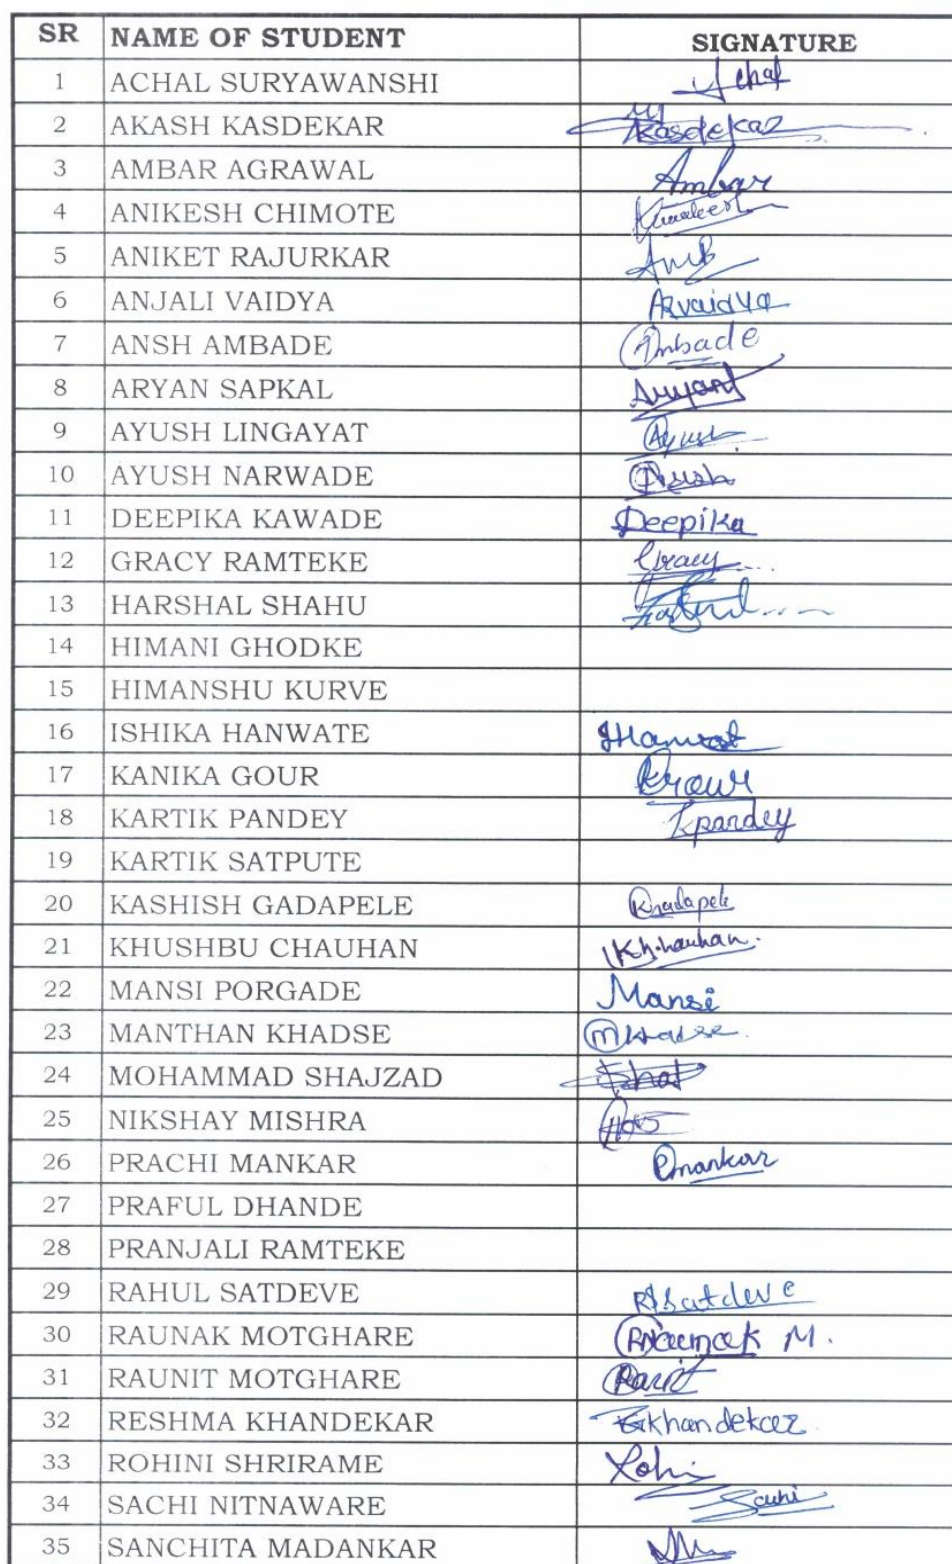 SR NAME OF STUDENT SIGNATURE
1 ACHAL SURYAWANSHI Achal
2 AKASH KASDEKAR Kasdekar
3 AMBAR AGRAWAL Ambar
4 ANIKESH CHIMOTE
5 ANIKET RAJURKAR
6 ANJALI VAIDYA ARvaidya
7 ANSH AMBADE Ambade
8 ARYAN SAPKAL Aryan
9 AYUSH LINGAYAT Ayush
10 AYUSH NARWADE
11 DEEPIKA KAWADE Deepika
12 GRACY RAMTEKE Gracy
13 HARSHAL SHAHU
14 HIMANI GHODKE
15 HIMANSHU KURVE
16 ISHIKA HANWATE
17 KANIKA GOUR
18 KARTIK PANDEY Kpandey
19 KARTIK SATPUTE
20 KASHISH GADAPELE Kgadapele
21 KHUSHBU CHAUHAN
22 MANSI PORGADE Mansi
23 MANTHAN KHADSE
24 MOHAMMAD SHAJZAD
25 NIKSHAY MISHRA
26 PRACHI MANKAR Pmankar
27 PRAFUL DHANDE
28 PRANJALI RAMTEKE
29 RAHUL SATDEVE
30 RAUNAK MOTGHARE Raunak M.
31 RAUNIT MOTGHARE
32 RESHMA KHANDEKAR
33 ROHINI SHRIRAME Rohi
34 SACHI NITNAWARE Sachi
35 SANCHITA MADANKAR